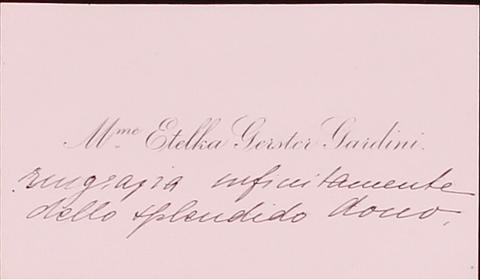 Mme Etelka Gerster Gardini.
ringrazia infinitamente
dello splendido dono.